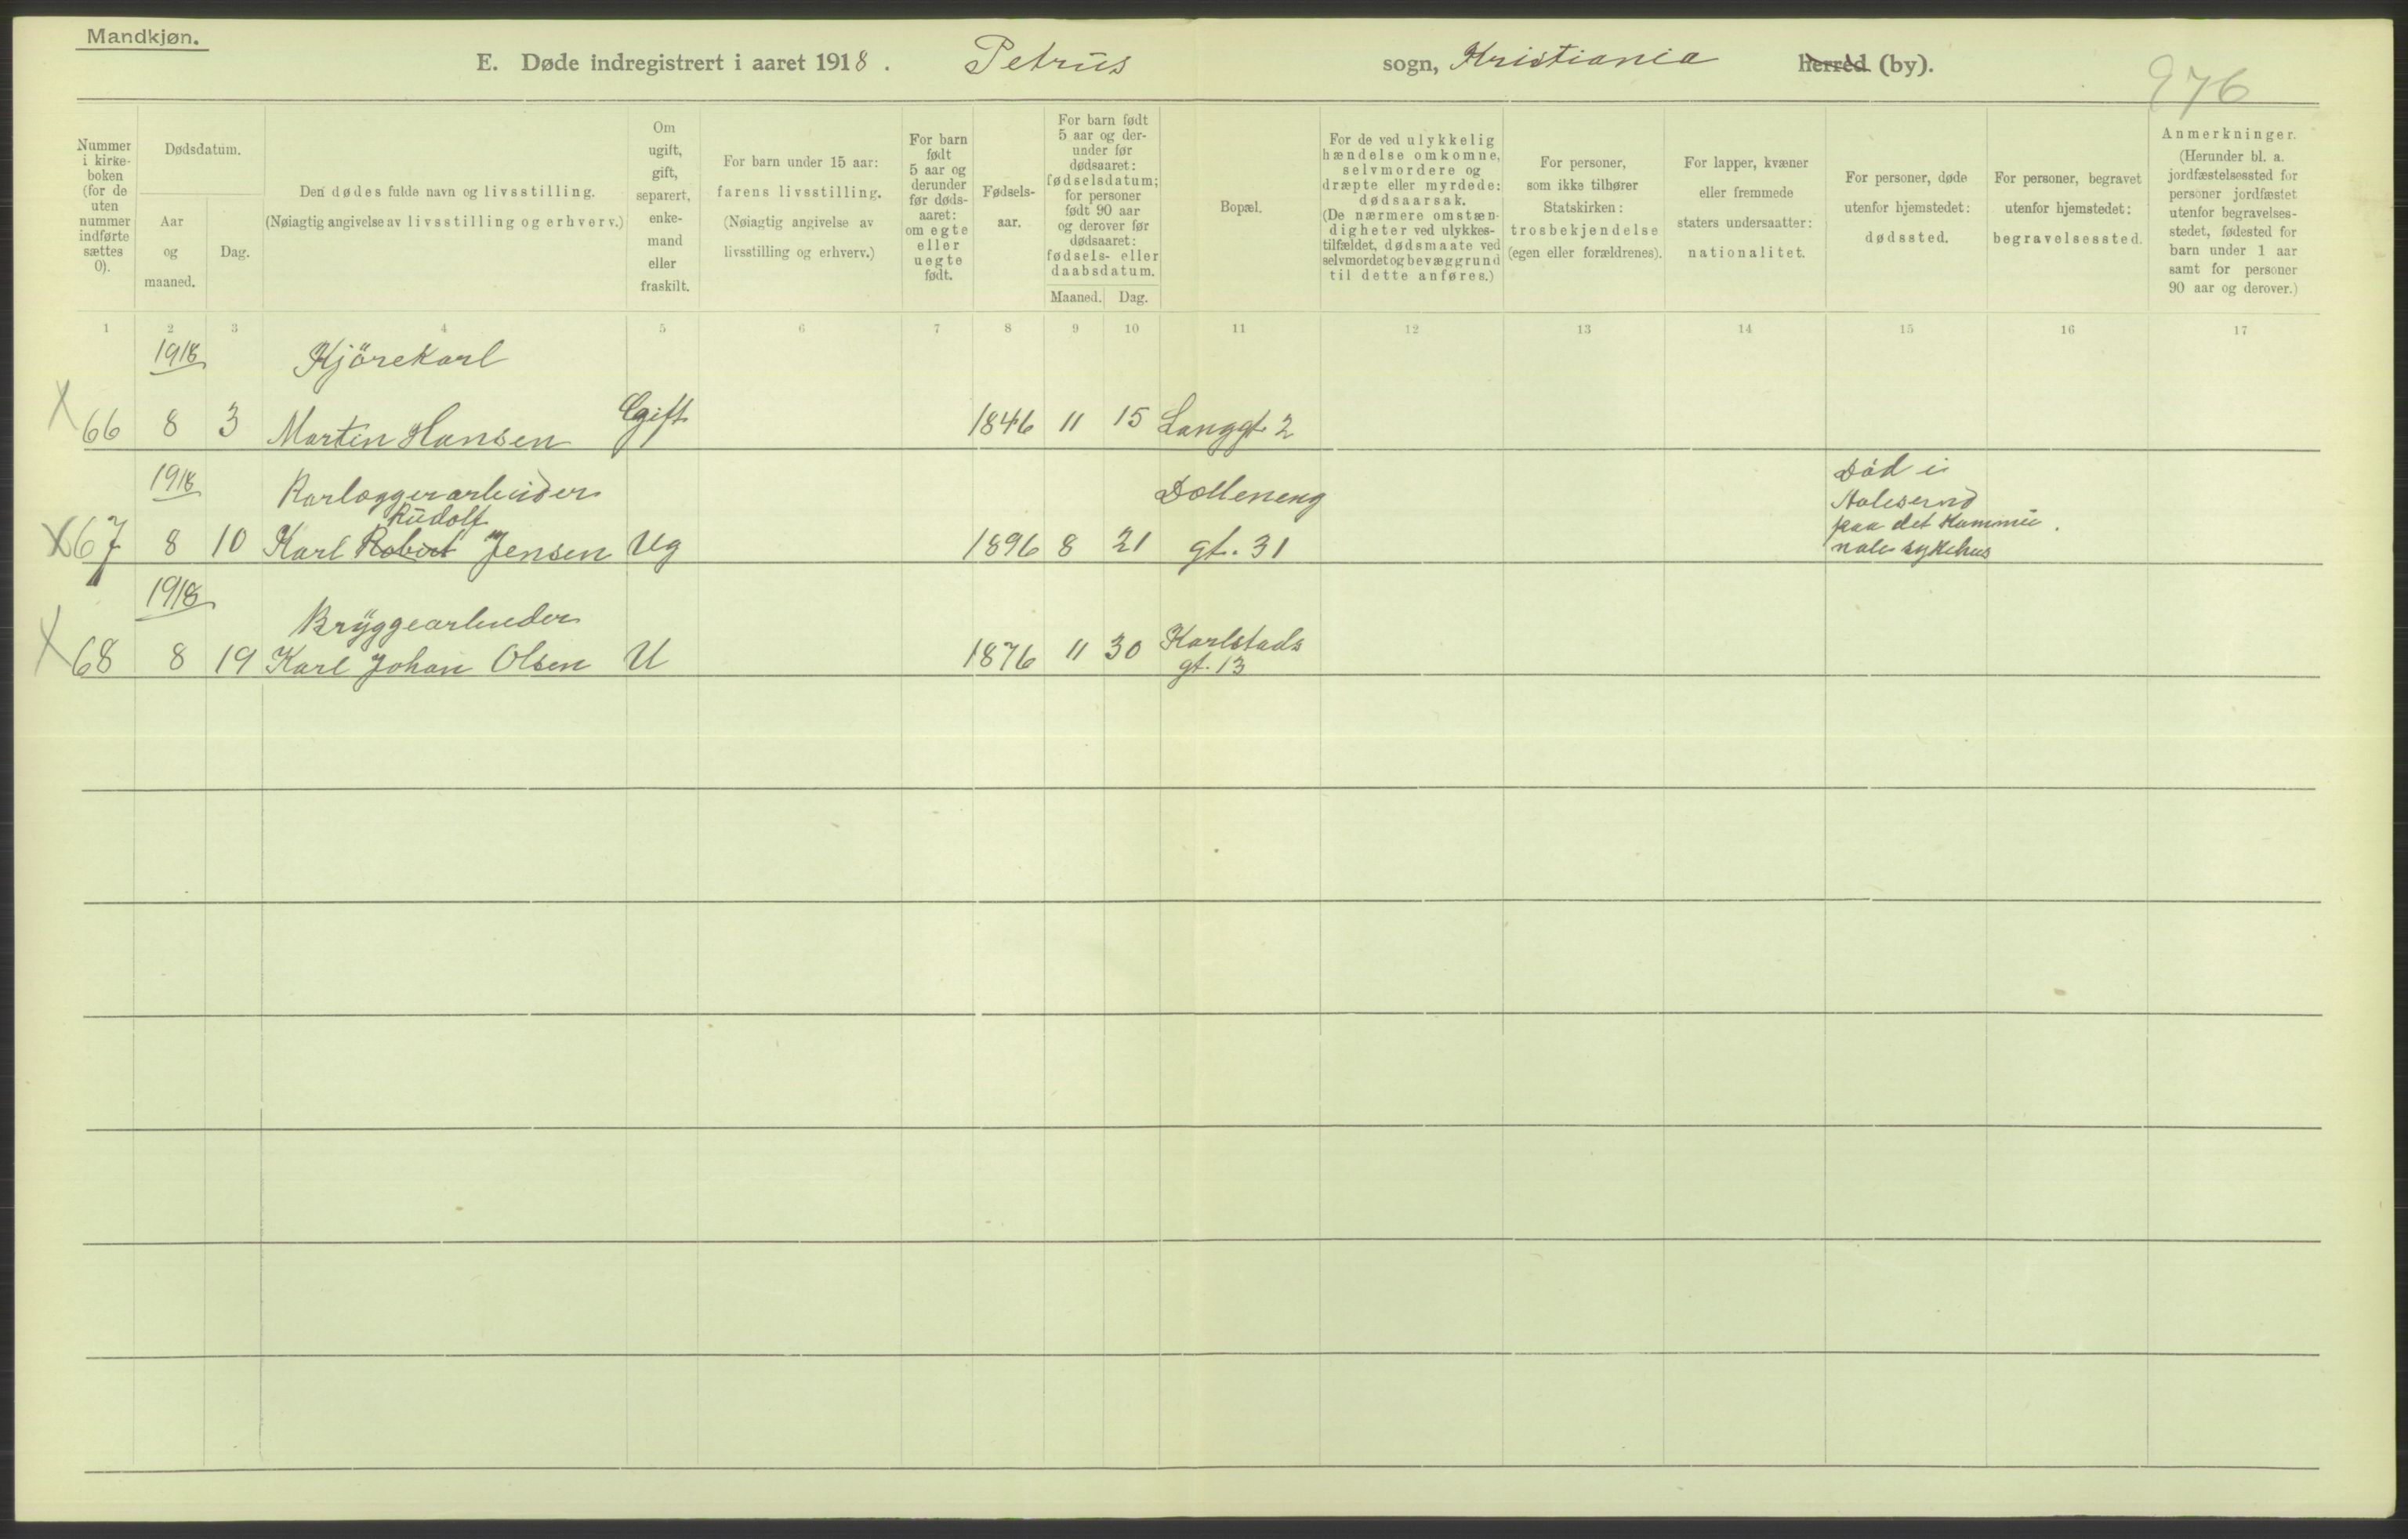 Mandkjøn.
E. Døde indregistrert i aaret 1918. Petrus sogn, Kristiania herred (by).
976
Nummer i kirke-boken (for de uten nummer indførte sættes 0).
Dødsdatum.
Aar og maaned.
Dag.
Den dødes fulde navn og livsstilling.
(Nøiagtig angivelse av livsstilling og erhverv.)
Om ugift, gift, separert, enke-mand eller fraskilt.
For barn under 15 aar:
farens livsstilling.
(Nøiagtig angivelse av livsstilling og erhverv.)
For barn født 5 aar og derunder før døds-aaret: om egte eller uegte født.
Fødsels-aar.
For barn født 5 aar og der-under før dødsaaret: fødselsdatum; for personer født 90 aar og derover før dødsaaret: fødsels- eller daabsdatum.
Maaned. Dag.
Bopæl.
For de ved ulykkelig hændelse omkomne, selvmordere og dræpte eller myrdede: dødsaarsak.
(De nærmere omstæn-digheter ved ulykkes-tilfældet, dødsmaate ved selvmordet og bevæggrund til dette anføres.)
For personer, som ikke tilhører Statskirken: trosbekjendelse (egen eller forældrenes).
For lapper, kvæner eller fremmede staters undersaatter: nationalitet.
For personer, døde utenfor hjemstedet: dødssted.
For personer, begravet utenfor hjemstedet: begravelsessted.
Anmerkninger.
(Herunder bl. a. jordfæstelsessted for personer jordfæstet utenfor begravelses-stedet, fødested for barn under 1 aar samt for personer 90 aar og derover.)
1 2 3 4 5 6 7 8 9 10 11 12 13 14 15 16 17
1918 Kjörekarl
X 66 8 3 Martin Hansen Gift 1846 11 15 Langgt. 2
1918 Rørlæggerarbeider Dælleneng Död i
Rudolf Aalesund
X 67 8 10 Karl Robert Jensen Ug 1896 8 21 gt. 31 paa det Kommu
nale sykehus
1918 Bryggearbeider
X 68 8 19 Karl Johan Olsen U 1876 11 30 Karlstads
gt. 13